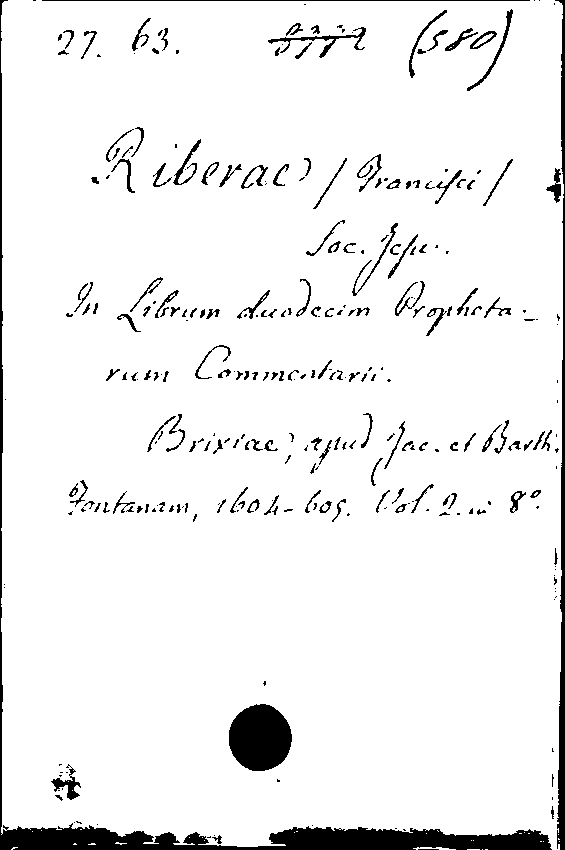 27. 63. (580)
Riberae / Francisci /
Soc. Jesu.
In Librum duodecim Propheta-
rum Commentarii.
Brixiae, apud Jac. et Barth.
Fontanam, 1604-605. Vol. 2. in 8º.